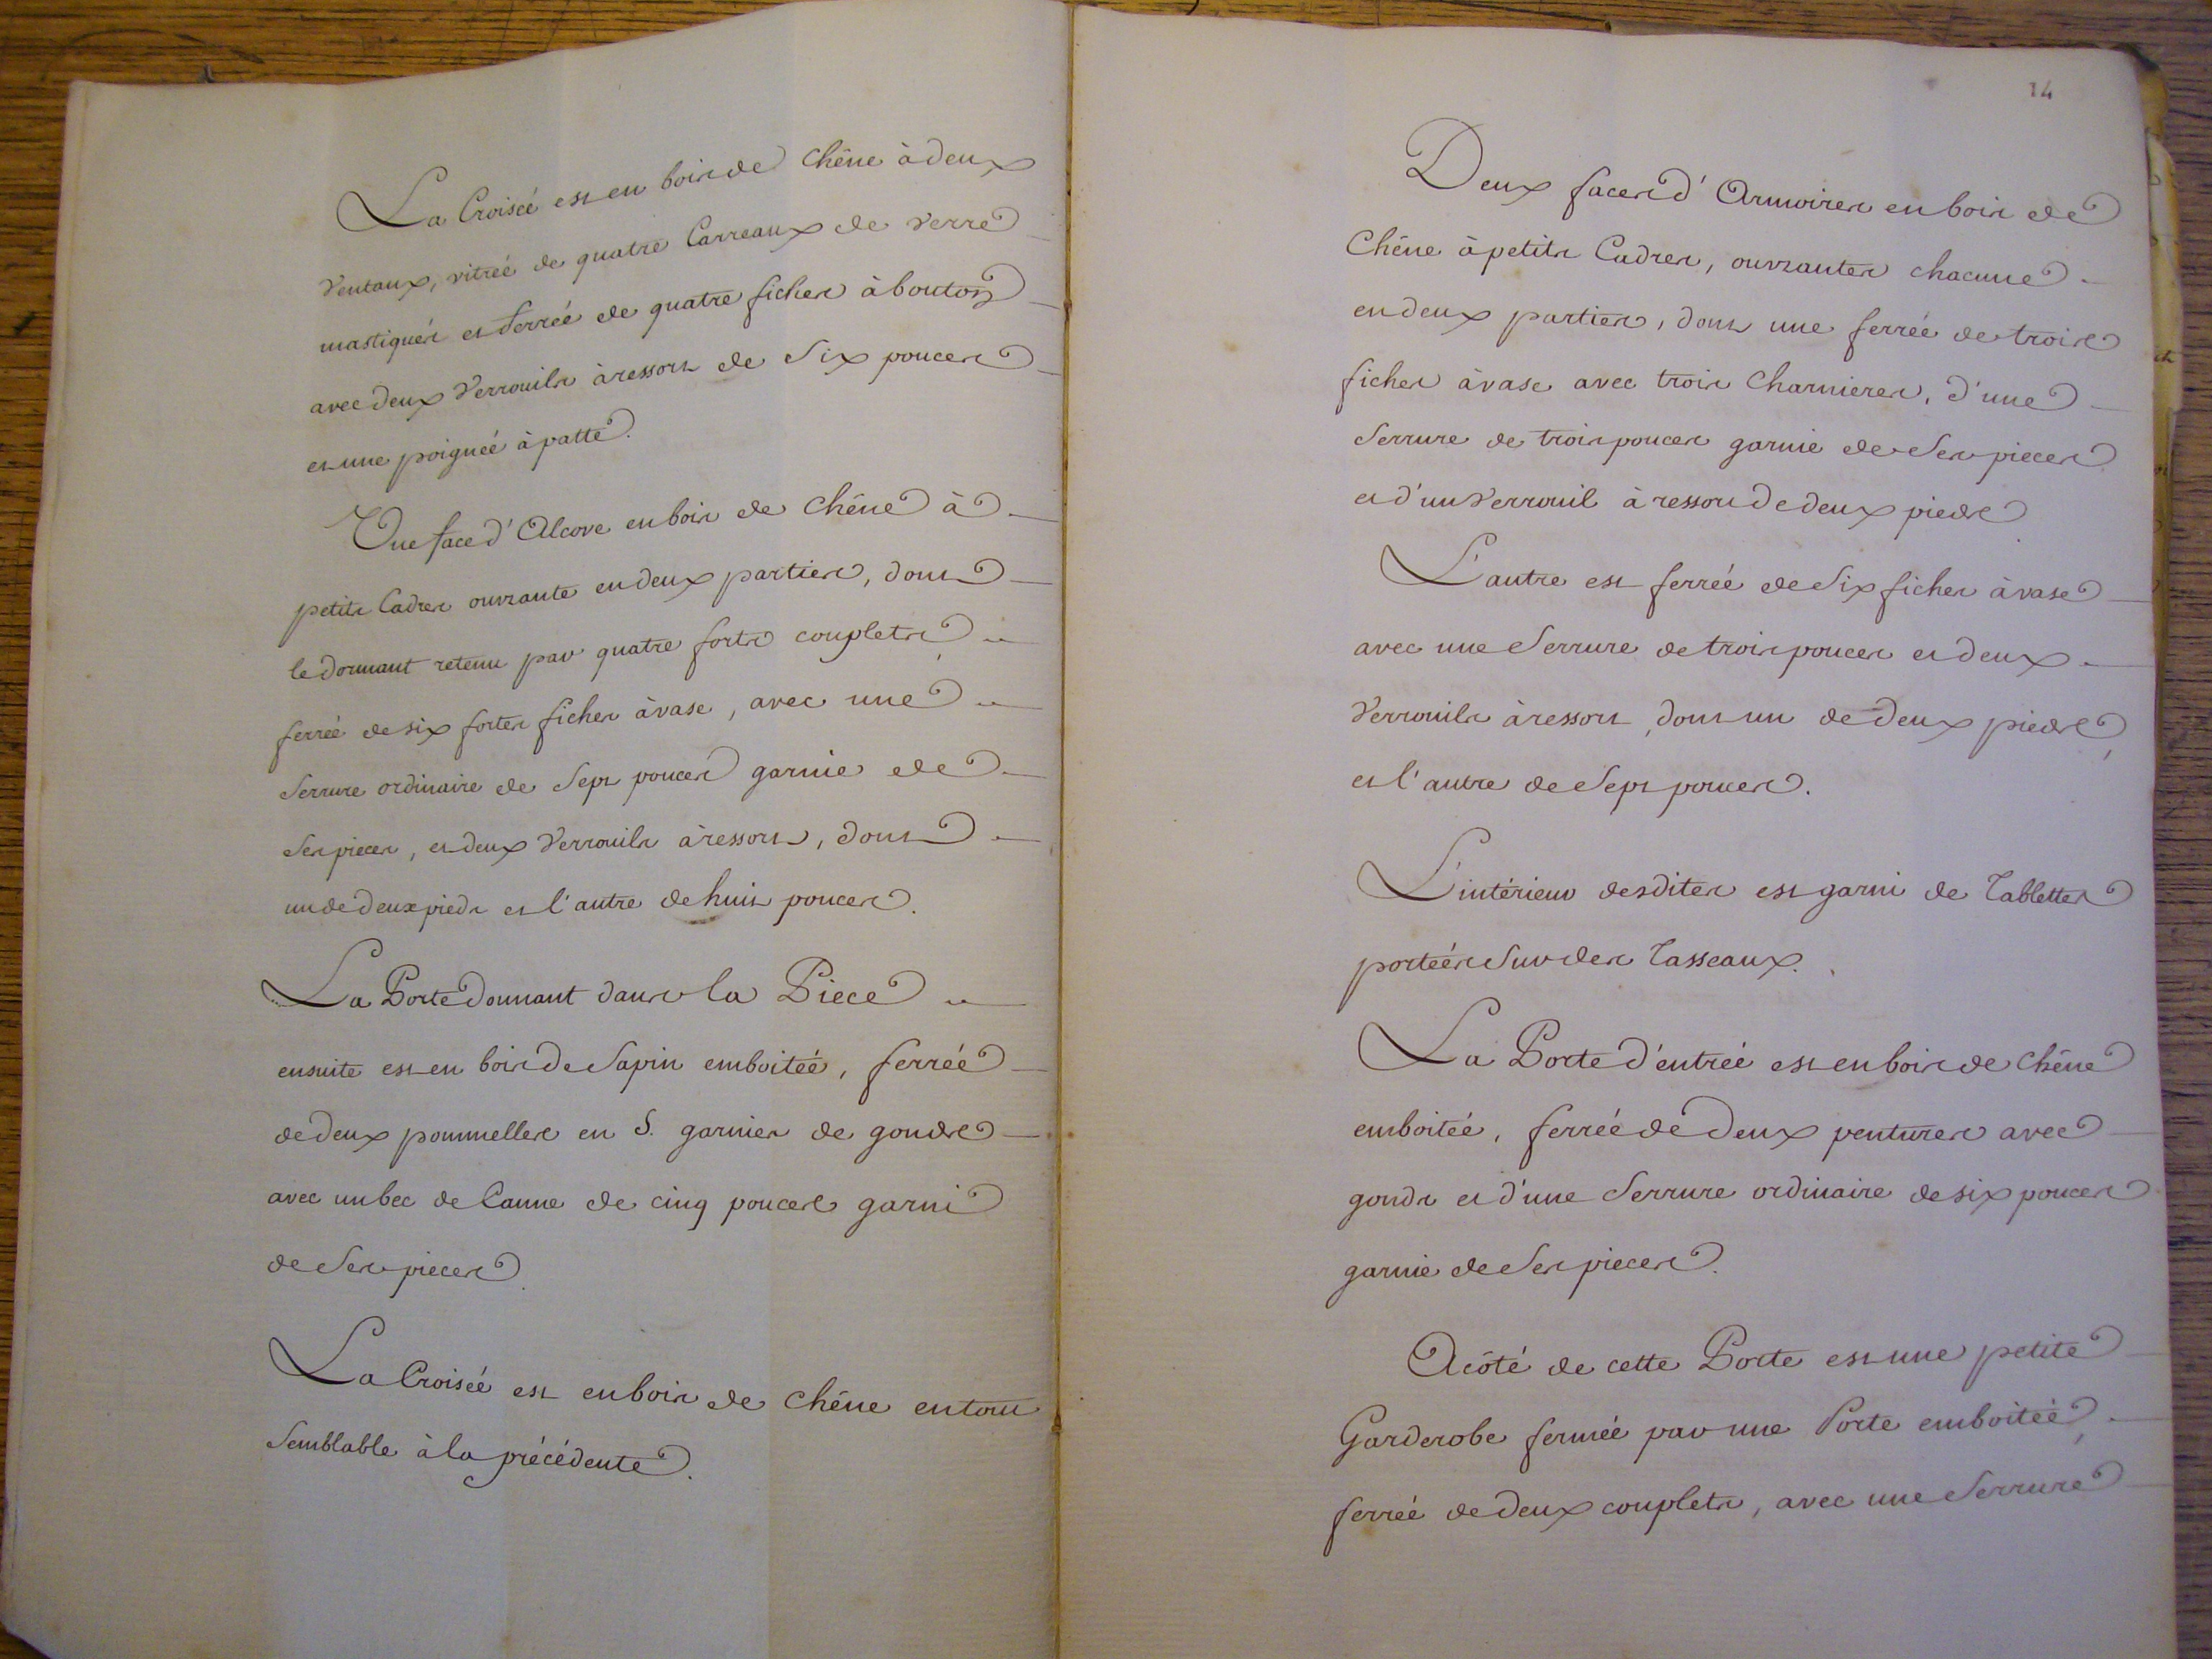 La Croisée est en bois de Chêne à deux
Ventaux, vitrée de quatre Carreaux de verre
mastiqués et ferrée de quatre fiches à bouton
avec deux Verrouils à ressort de Six pouces
et une poignée à patte.
Une face d'Alcove en bois de Chêne à
petits Cadres ouvrante en deux parties, dont
le dormant retenu par quatre forts couplets,
ferrée de six fortes fiches à vase, avec une
Serrure ordinaire de Sept pouces garnie de
Ses pieces, et deux Verrouils à ressort, dont
un de deux pieds et l'autre de huit pouces.
La Porte donnant dans la Piece
ensuite est en bois de Sapin emboitée, ferrée
de deux pommelles en S. garnies de gonds
avec un bec de Canne de cinq pouces garni
de Ses pieces.
La Croisée est en bois de Chêne en tout
Semblable à la précédente.
14
Deux faces d'Armoires en bois de
Chêne à petits Cadres, ouvrantes chacune
en deux parties, dont une ferrée de trois
fiches à vase avec trois Charnieres, d'une
Serrure de trois pouces garnie de Ses pieces
et d'un Verrouil à ressort de deux pieds.
L'autre est ferrée de Six fiches à vase
avec une Serrure de trois pouces et deux
Verrouils à ressort, dont un de deux pieds,
et l'autre de Sept pouces.
L'intérieur desdites est garni de Tablettes
portées Sur des Tasseaux.
La Porte d'entrée est en bois de Chêne
emboitée, ferrée de deux pentures avec
gonds et d'une Serrure ordinaire de six pouces
garnie de Ses pieces.
A côté de cette Porte est une petite
Garderobe fermée par une Porte emboitée,
ferrée de deux couplets, avec une Serrure